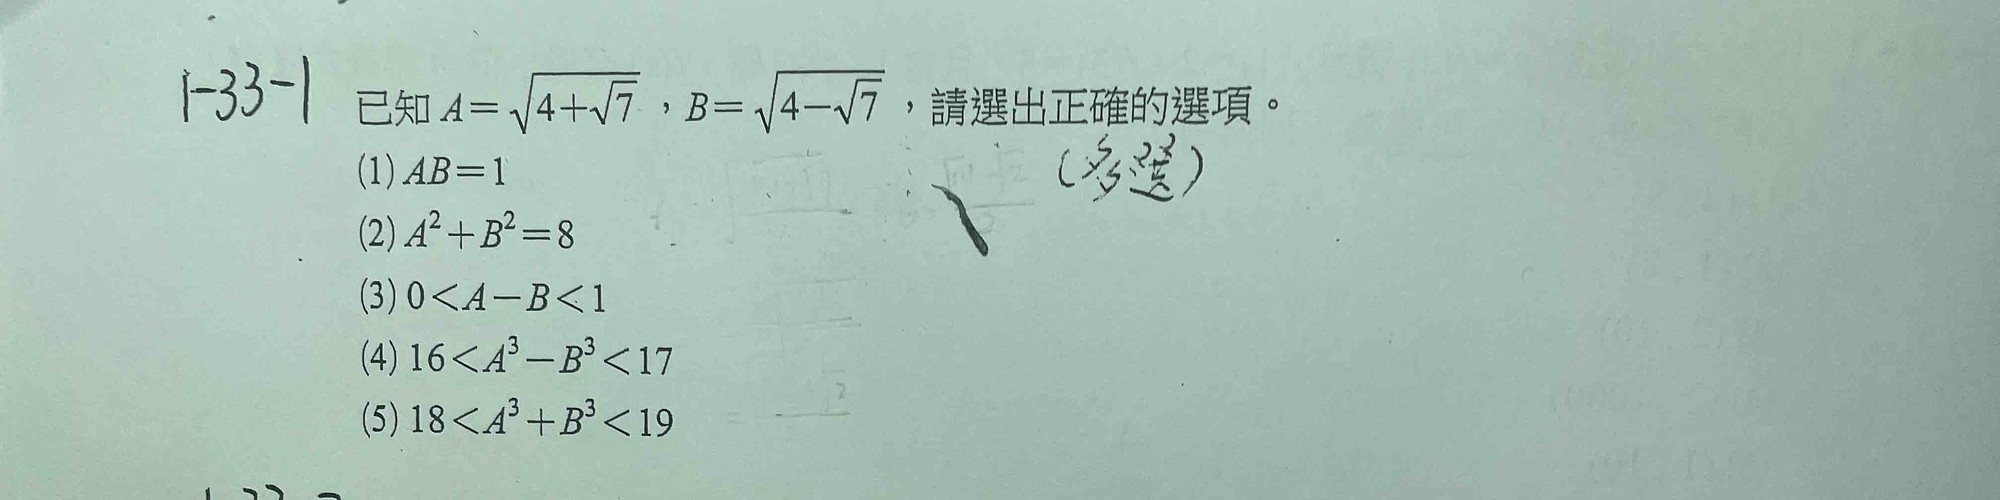 1-33-1 已知 A=√(4+√7)，B=√(4−√7)，請選出正確的選項。
(多選)
(1) AB=1
(2) A²+B²=8
(3) 0<A−B<1
(4) 16<A³−B³<17
(5) 18<A³+B³<19